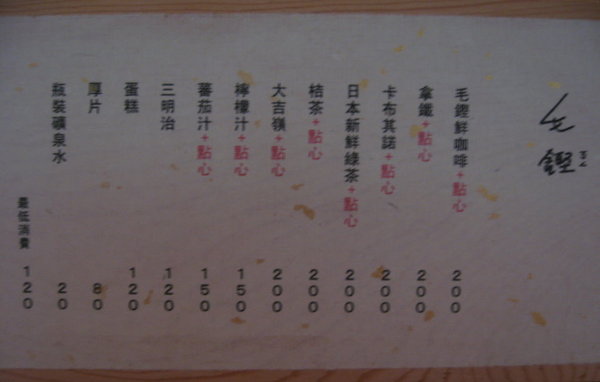 毛鏗
毛鏗鮮咖啡+點心 200
拿鐵+點心 200
卡布其諾+點心 200
日本新鮮綠茶+點心 200
桔茶+點心 200
大吉嶺+點心 200
檸檬汁+點心 150
蕃茄汁+點心 150
三明治 120
蛋糕 120
厚片 80
瓶裝礦泉水 20
最低消費 120